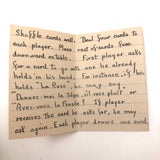 Shuffle cards well,
each player. Place
downward on table.
for a card to go with one he already
holds in his hand. For instance, if he
holds "La Rose, he may say,
"Donnez-moi la tulipe, s'il vous plait" or
"Avez-vous la Pensée? If player
receives the card he asks for, he may
ask again. Each player draws one card
Deal four cards to
rest of cards face
First player asks